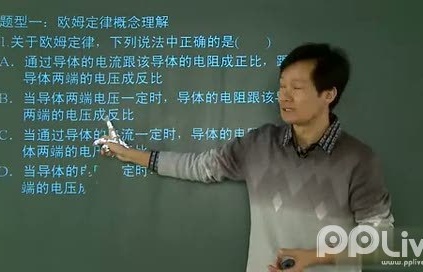 题型一：欧姆定律概念理解
1.关于欧姆定律，下列说法中正确的是(　　)
A．通过导体的电流跟该导体的电阻成正比，跟
导体两端的电压成反比
B．当导体两端电压一定时，导体的电阻跟该导
两端的电压成反比
C．当通过导体的 流一定时，导体的电
体两端的电 比
D．当导体的 定时
端的电压
PPLive
www.pplive